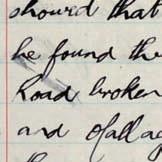 showed that
he found the
Road broken
and Ofallag